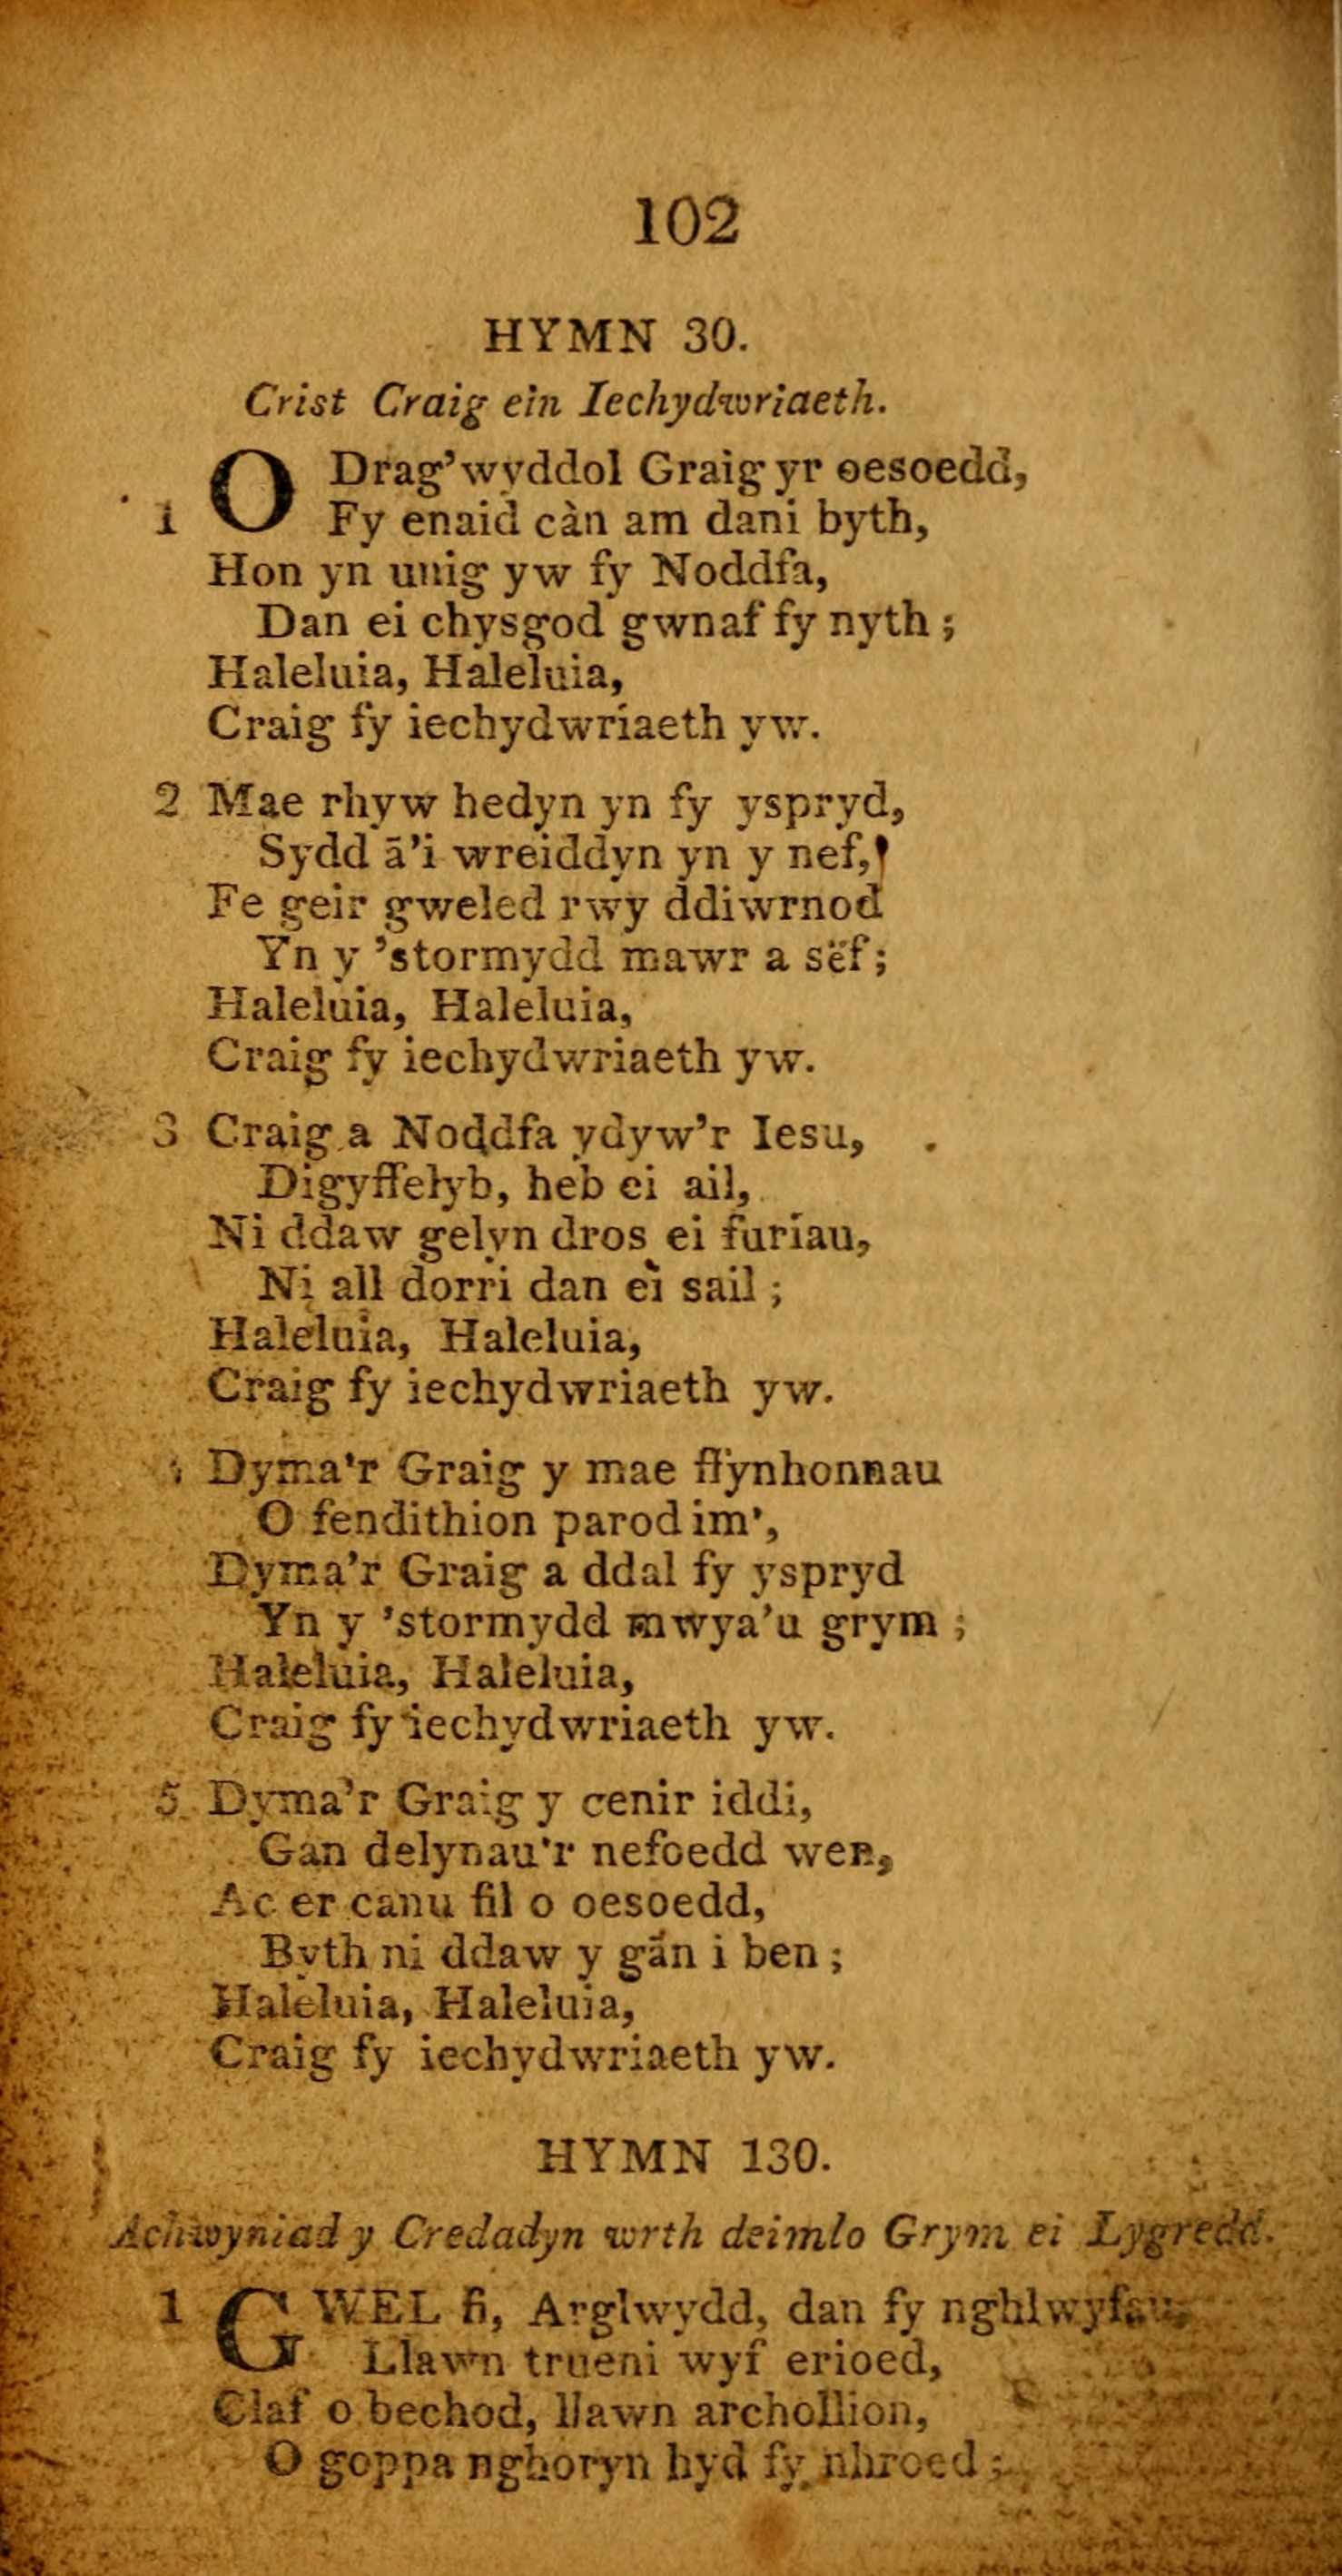 102
HYMN 30.
Crist Craig ein Iechydwriaeth.
1 O Drag'wyddol Graig yr oesoedd,
Fy enaid càn am dani byth,
Hon yn unig yw fy Noddfa,
Dan ei chysgod gwnaf fy nyth ;
Haleluia, Haleluia,
Craig fy iechydwriaeth yw.
2 Mae rhyw hedyn yn fy yspryd,
Sydd ā'i wreiddyn yn y nef,
Fe geir gweled rwy ddiwrnod
Yn y 'stormydd mawr a sëf ;
Haleluia, Haleluia,
Craig fy iechydwriaeth yw.
3 Craig a Noddfa ydyw'r Iesu,
Digyffelyb, heb ei ail,
Ni ddaw gelyn dros ei furiau,
Ni all dorri dan ei sail ;
Haleluia, Haleluia,
Craig fy iechydwriaeth yw.
Dyma'r Graig y mae ffynhonnau
O fendithion parod im',
Dyma'r Graig a ddal fy yspryd
Yn y 'stormydd mwya'u grym ;
Haleluia, Haleluia,
Craig fy iechydwriaeth yw.
5 Dyma'r Graig y cenir iddi,
Gan delynau'r nefoedd wen,
Ac er canu fil o oesoedd,
Byth ni ddaw y gân i ben ;
Haleluia, Haleluia,
Craig fy iechydwriaeth yw.
HYMN 130.
Achwyniad y Credadyn wrth deimlo Grym ei Lygredd.
1 GWEL fi, Arglwydd, dan fy nghlwyfau,
Llawn trueni wyf erioed,
Claf o bechod, llawn archollion,
O goppa nghoryn hyd fy nhroed ;